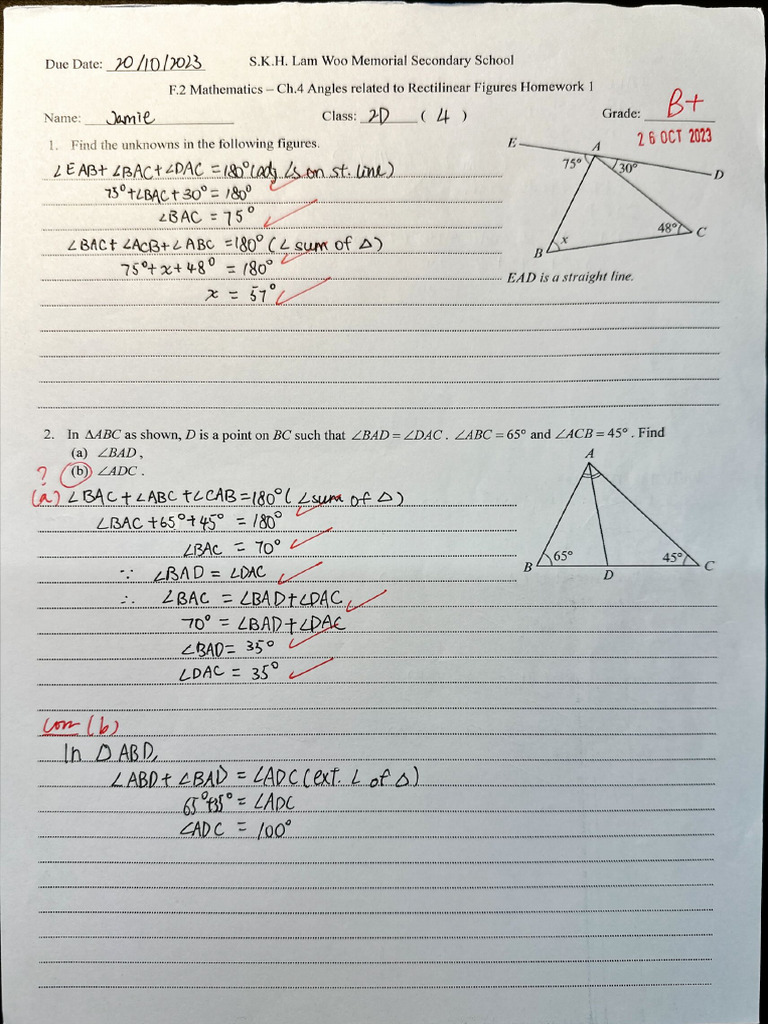 Due Date: 20/10/2023 S.K.H. Lam Woo Memorial Secondary School
F.2 Mathematics – Ch.4 Angles related to Rectilinear Figures Homework 1
Name: Jamie Class: 2D ( 4 ) Grade: B+
26 OCT 2023
1. Find the unknowns in the following figures.
∠EAB + ∠BAC + ∠DAC = 180° (adj. ∠s on st. line)
75° + ∠BAC + 30° = 180°
∠BAC = 75°
∠BAC + ∠ACB + ∠ABC = 180° (∠ sum of △)
75° + x + 48° = 180°
x = 57°
E A D
75° 30°
48° C
x
B
EAD is a straight line.
2. In ΔABC as shown, D is a point on BC such that ∠BAD = ∠DAC . ∠ABC = 65° and ∠ACB = 45° . Find
(a) ∠BAD ,
? (b) ∠ADC .
(a) ∠BAC + ∠ABC + ∠CAB = 180° (∠sum of △)
∠BAC + 65° + 45° = 180°
∠BAC = 70°
∵ ∠BAD = ∠DAC
∴ ∠BAC = ∠BAD + ∠DAC
70° = ∠BAD + ∠DAC
∠BAD = 35°
∠DAC = 35°
A
65° 45°
B D C
Corr (b)
In △ABD,
∠ABD + ∠BAD = ∠ADC (ext. ∠ of △)
65° + 35° = ∠ADC
∠ADC = 100°